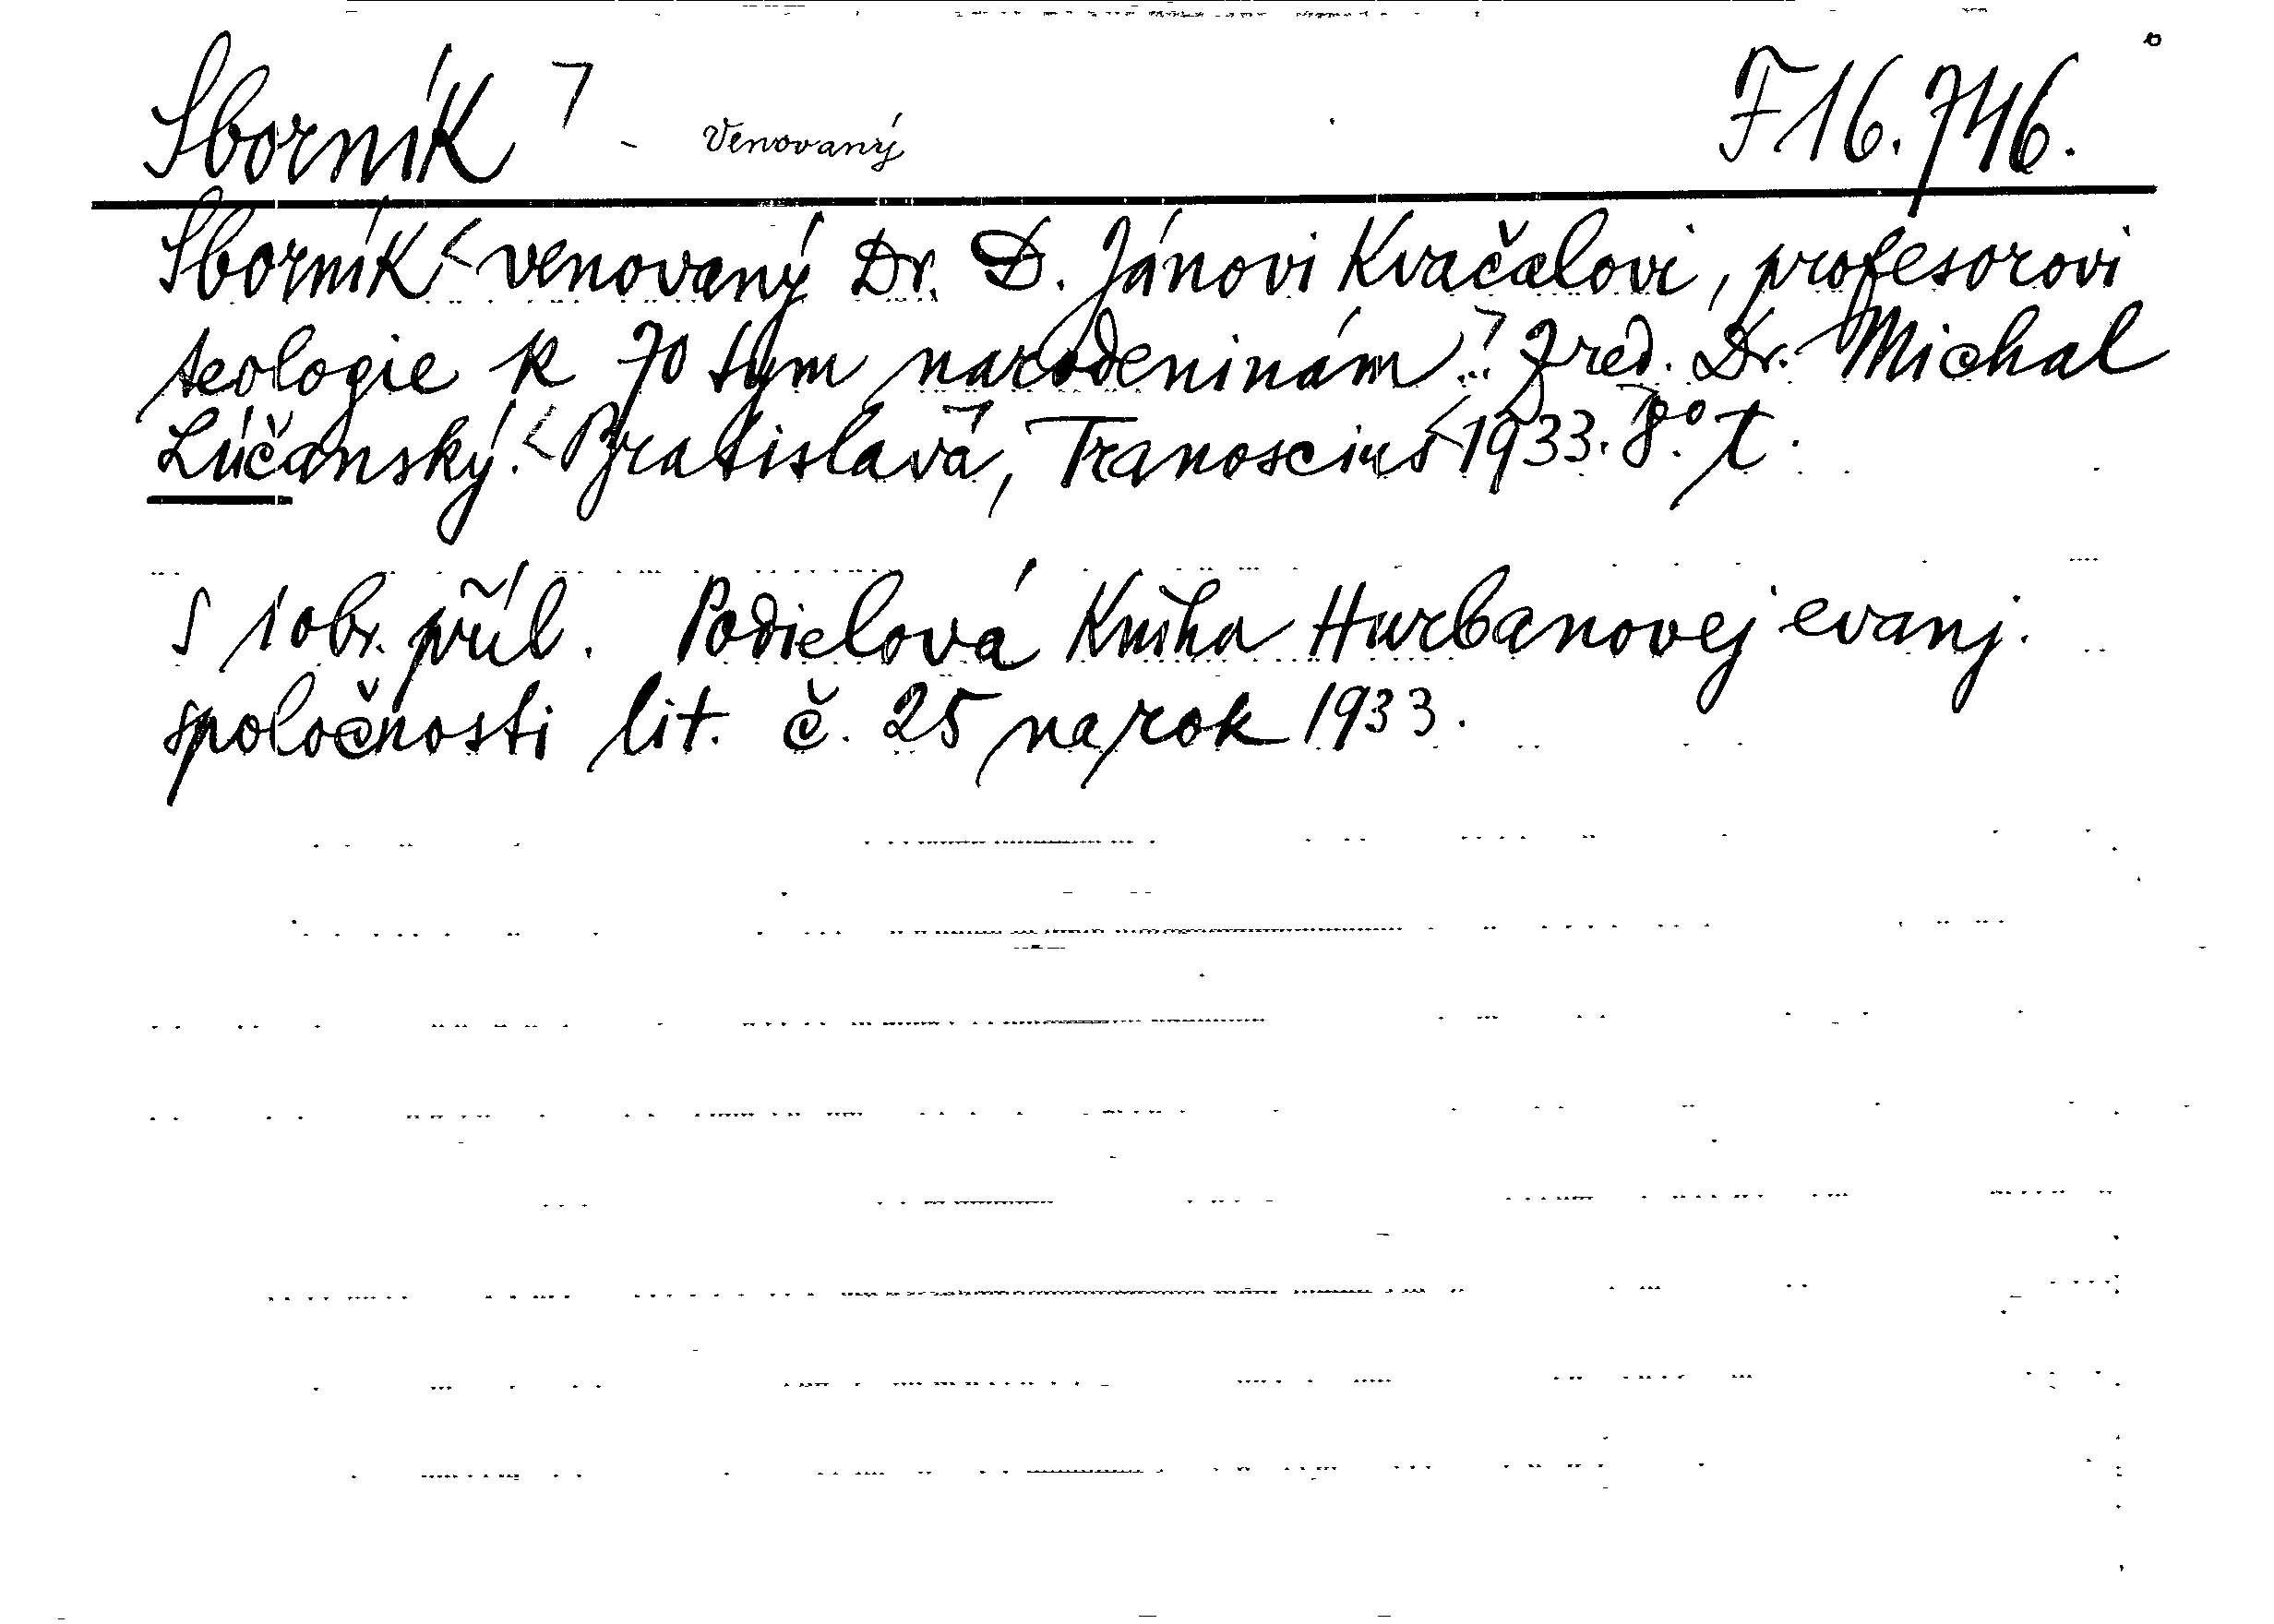 Sborník - Venovaný F 16.746.
Sborník venovaný Dr. D. Jánovi Kvačalovi, profesorovi
teologie k 70 tym narodeninám. Zred. Dr. Michal
Lúčanský. Bratislava, Tranoscius 1933. 8° t.
S 1 obr. příl. Podielová Kniha Hurbanovej evanj.
spoločnosti lit. č. 25 na rok 1933.